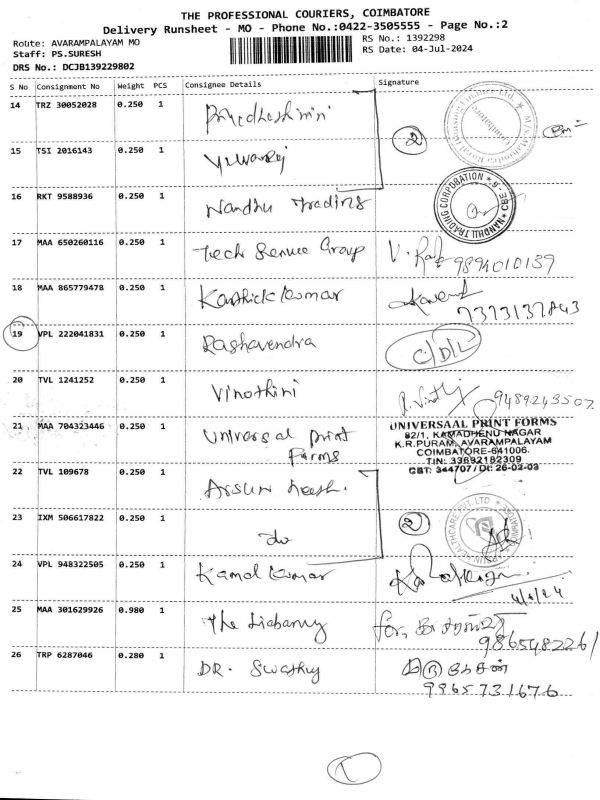 THE PROFESSIONAL COURIERS, COIMBATORE
Delivery Runsheet - MO - Phone No.:0422-3505555 - Page No.:2
Route: AVARAMPALAYAM MO
RS No.: 1392298
Staff: PS.SURESH
RS Date: 04-Jul-2024
DRS No.: DCJB139229802
S No Consignment No Weight PCS Consignee Details Signature
14 TRZ 30052028 0.250 1 Priyadharshini
2
15 TSI 2016143 0.250 1 Yuvaraj
16 RKT 9588936 0.250 1 Nandhu Trading
NANDHU TRADING CORPORATION * CBE-6 *
17 MAA 650260116 0.250 1 Tech Service Group 9894010139
18 MAA 865779478 0.250 1 Karthick Kumar
19 VPL 222041831 0.250 1 Raghavendra C/D/L
20 TVL 1241252 0.250 1 Vinothini 9489243507
21 MAA 704323446 0.250 1 Universal Print Forms
UNIVERSAAL PRINT FORMS
82/1, KAMADHENU NAGAR
K.R.PURAM, AVARAMPALAYAM
COIMBATORE-641006.
TIN: 33692182309
CBT: 344707/Dt: 26-02-03
22 TVL 109678 0.250 1
2
23 IXM 506617822 0.250 1 do
24 VPL 948322505 0.250 1 Kamal Kumar
25 MAA 301629926 0.980 1 The Liabarwy for,
9865482261
26 TRP 6287046 0.280 1 DR. Swathy
9965731676
1